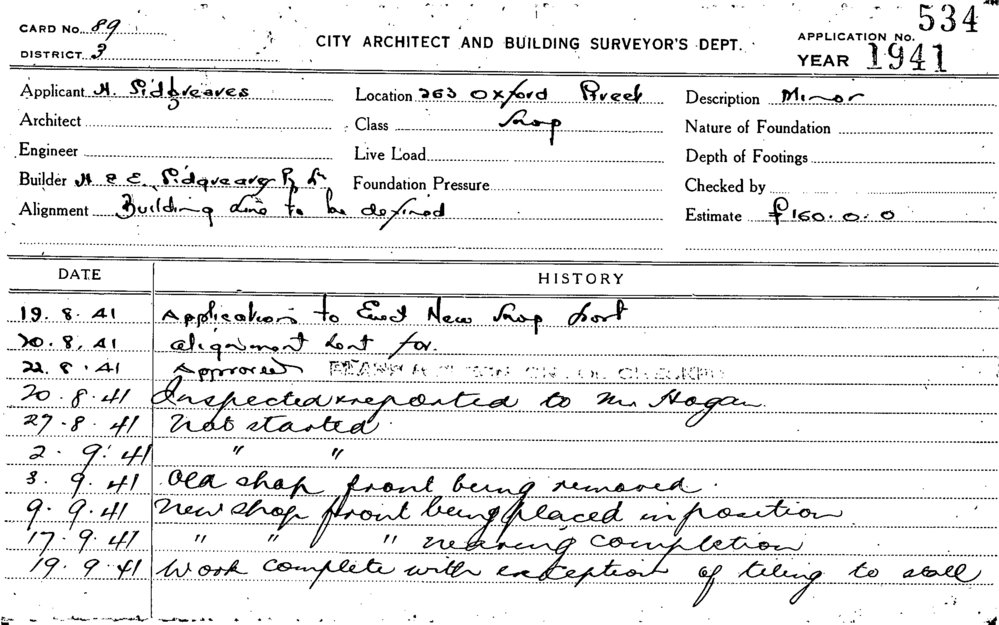 CARD No. 89
DISTRICT 3
CITY ARCHITECT AND BUILDING SURVEYOR'S DEPT.
APPLICATION No. 534
YEAR 1941
Applicant H. Pidgreaves Location 263 Oxford Street Description Minor
Architect Class Shop Nature of Foundation
Engineer Live Load Depth of Footings
Builder H & E. Foundation Pressure Checked by
Alignment Building Line to be defined Estimate £160.0.0
DATE HISTORY
19.8.41 Application to Erect New Shop front
20.8.41 alignment sent for.
22.8.41 Approved
20.8.41 Inspected & reported to Mr Hogan
27.8.41 Not started
2.9.41 " "
3.9.41 Old shop front being removed.
9.9.41 New shop front being placed in position
17.9.41 " " " nearing completion
19.9.41 Work complete with exception of tiling to stall